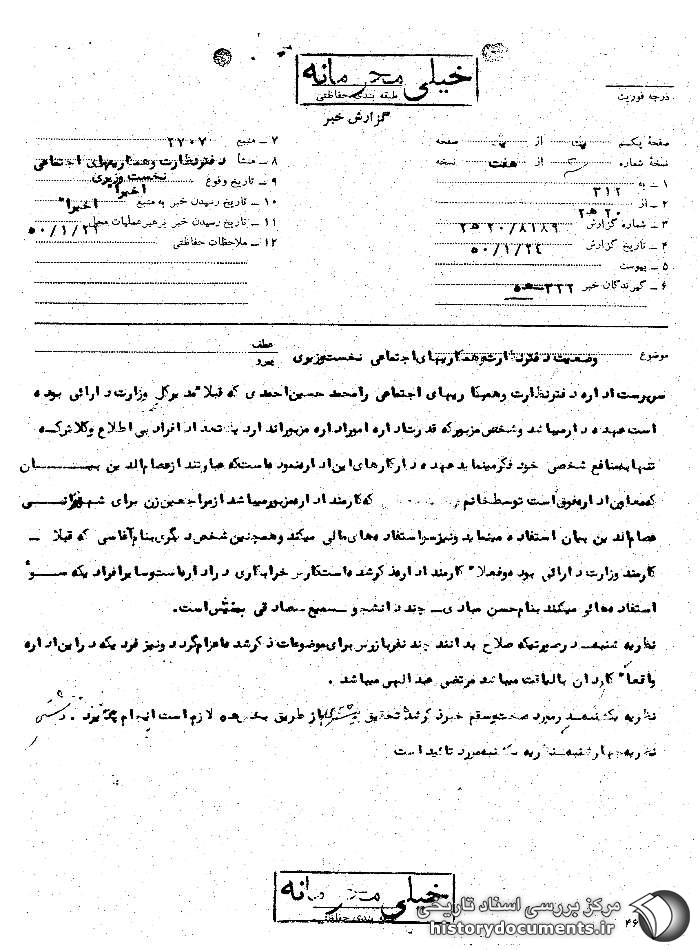 خیلی محرمانه
طبقه بندی حفاظتی
گزارش خبر
درجه فوریت
صفحه یکم از صفحه
نسخه شماره از هفت نسخه
۱ ـ به ۳۱۲
۲ ـ از ۲۰ ه ۲
۳ ـ شماره گزارش ۲۰/۸۱۸۹ ه ۲
۴ ـ تاریخ گزارش ۵۰/۱/۲۴
۵ ـ پیوست
۶ ـ گیرندگان خبر
۷ ـ منبع ۲۷۰۷
۸ ـ منشأ دفتر نظارت و همکاریهای اجتماعی نخست وزیری
۹ ـ تاریخ وقوع اخیرا"
۱۰ ـ تاریخ رسیدن خبر به منبع اخیرا"
۱۱ ـ تاریخ رسیدن خبر برهبر عملیات محل
۱۲ ـ ملاحظات حفاظتی
موضوع وضعیت دفتر نظارت و همکاریهای اجتماعی نخست وزیری
عطف
پیرو
سرپرست اداره دفتر نظارت و همکاریهای اجتماعی را محمد حسین احمدی که قبلا مدیر کل وزارت دارائی بوده
است عهده دار میباشد و شخص مزبور که قدرت اداره امور اداره مزبور را ندارد با تعداد افراد بی اطلاع و کلاش که
تنها به منافع شخصی خود فکر مینماید عهده دار کارهای این اداره نموده است که عبارتند از عصام الدین بیمان
که معاون اداره فوق است توسط خانم که کارمند اداره مزبور میباشد از مراجعین زن برای شهوترانی
عصام الدین بیمان استفاده مینماید و نیز سو استفاده های مالی میکند و همچنین شخص دیگری بنام آقاسی که قبلا
کارمند وزارت دارائی بوده و فعلا" کارمند اداره ذکر شده است کارش خرابکاری در اداره است و سایر افرادیکه سو"
استفاده مالی میکنند بنام حسن عبادی ـ چند دانشجو ـ سمیع صادقی
نظریه شنبه ـ در صورتیکه صلاح بدانند چند نفر بازرس برای موضوعات ذکر شده اعزام گردد و نیز فردیکه در این اداره
واقعا" کاردان با لیاقت میباشد مرتضی عبدالهی میباشد .
نظریه یکشنبه ـ در مورد صحت و سقم خبر ذکر شده تحقیق بیشتری از طریق لازم است انجام پذیرد .
نظریه چهارشنبه ـ نظریه یکشنبه مورد تائید است
خیلی محرمانه
طبقه بندی حفاظتی
۴۶
مرکز بررسی اسناد تاریخی
historydocuments.ir